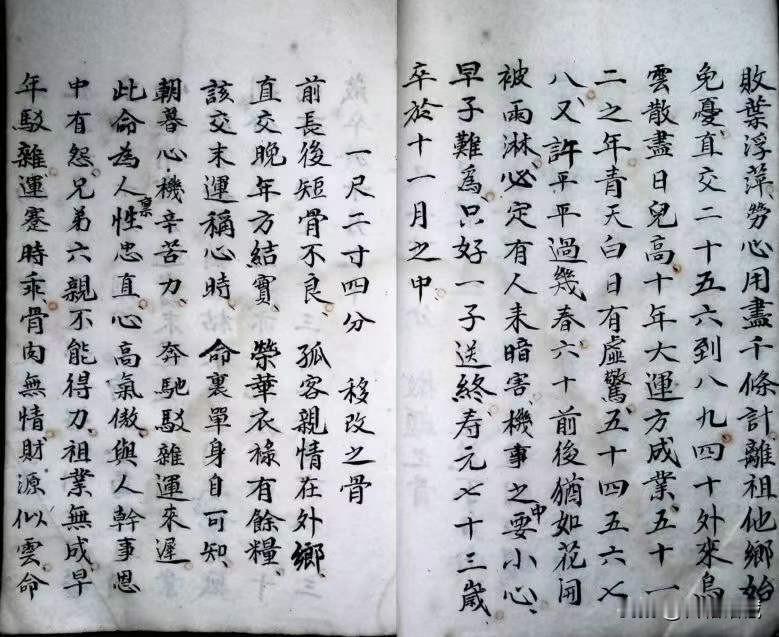 敗葉浮萍勞心用盡千條計離祖他鄉始
免憂直交二十五六到八九四十外來烏
雲散盡日兒高十年大運方成業五十一
二之年青天白日有虛驚五十四五六七
八又許平平過幾春六十前後猶如花開
被雨淋必定有人来暗害機事之中要小心
早子難爲只好一子送終寿元七十三歲
卒於十一月之中
一尺二寸四分 移改之骨
前長後短骨不良孤客親情在外鄉
直交晚年方結實榮華衣祿有餘糧
該交末運稱心時命裏單身自可知
朝暮心機辛苦力奔馳駁雜運來遲
此命為人稟性忠直心高氣傲與人幹事恩
中有怨兄弟六親不能得力祖業無成早
年駁雜運蹇時乖骨肉無情財源似雲命